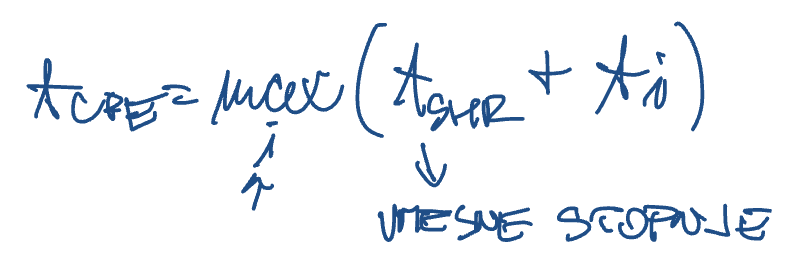 t_CPE = max_i (t_SHR + t_i)
VMESNE STOPNJE